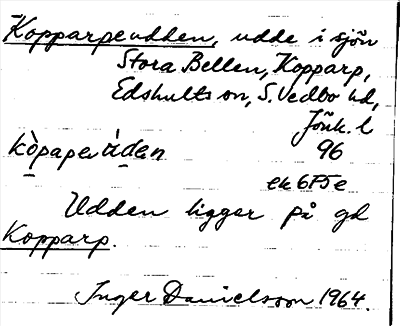 Kopparpeudden, udde i sjön
Stora Bellen, Kopparp,
Edshults sn, S. Vedbo hd,
Jönk. l
kòpaperúden 96
ek 6F5e
Udden ligger på gd
Kopparp.
Inger Danielsson 1964.